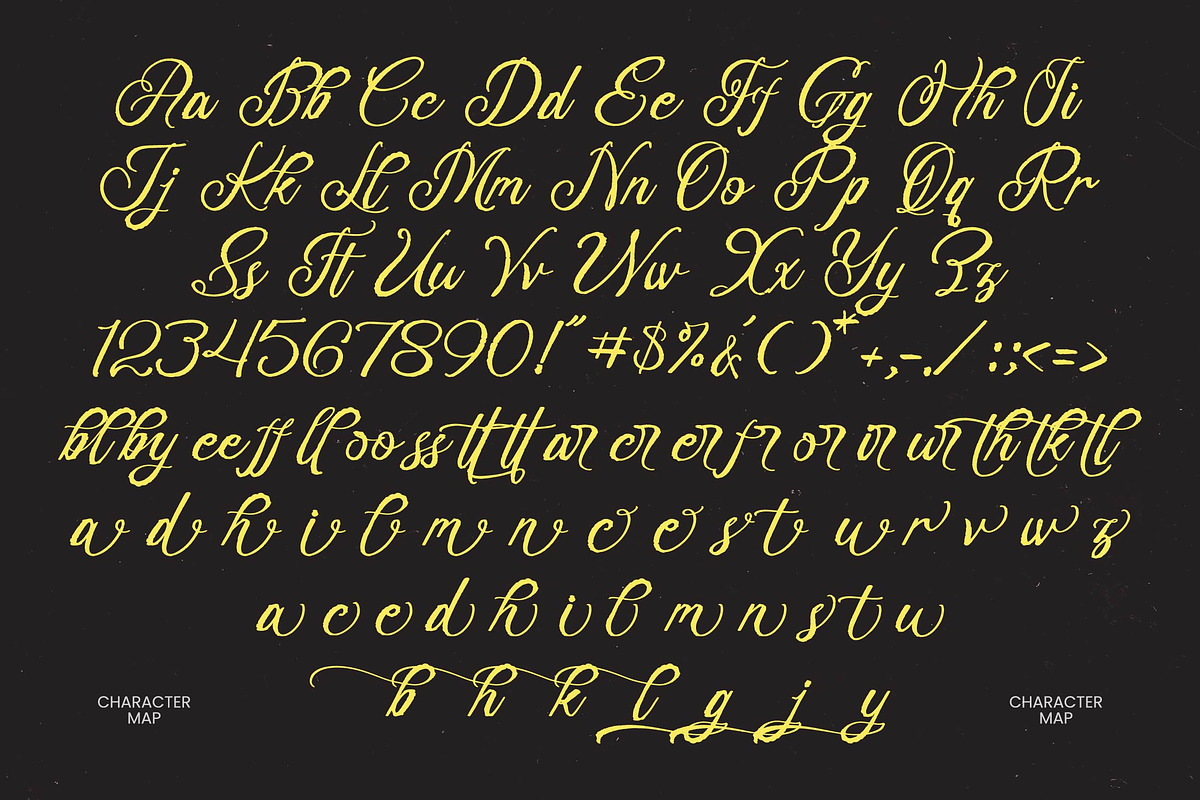 Aa Bb Cc Dd Ee Ff Gg Hh Ii
Jj Kk Ll Mm Nn Oo Pp Qq Rr
Ss Tt Uu Vv Ww Xx Yy Zz
1234567890!"#$%&'()*+,-./:;<=>
bl by ee ff ll oo ss tt tt ar cr er fr or ir ur th tk tl
a d h i l m n c e s t u r v w z
a c e d h i l m n s t u
b h k l g j y
CHARACTER MAP
CHARACTER MAP